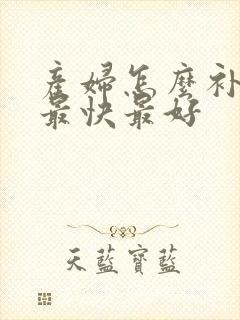 產婦怎麼补
最快最好
天藍寶藍